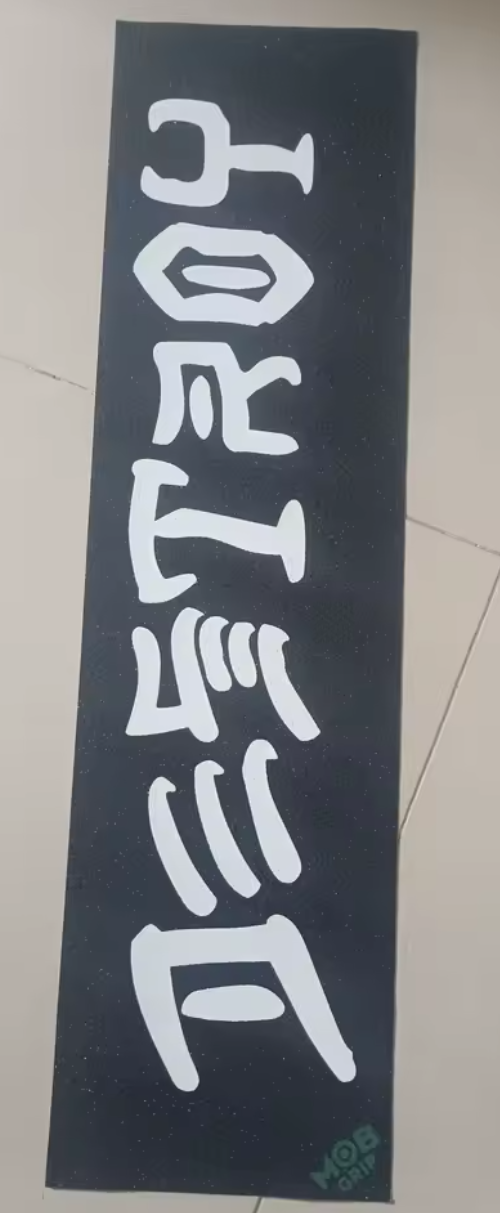 DESTROY
MOB
GRIP